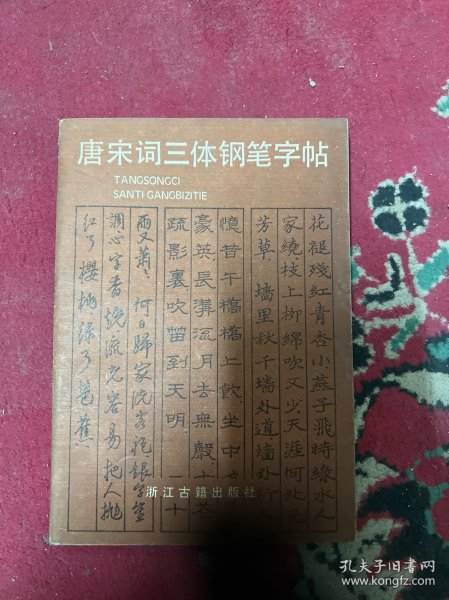 唐宋词三体钢笔字帖
TANGSONGCI
SANTI GANGBIZITIE
花褪殘紅青杏小燕子飛時綠水人
家繞枝上柳綿吹又少天涯何處无
芳草 墙里秋千墙外道墙外行
憶昔午橋橋上飲坐中
豪英長溝流月去無聲
疏影裏吹留到天明 二十
雨又蕭〻 何日歸家洗客袍銀字笙
調心字香燒流光容易把人抛
紅了櫻桃綠了芭蕉
浙江古籍出版社
孔夫子旧书网
www.kongfz.com